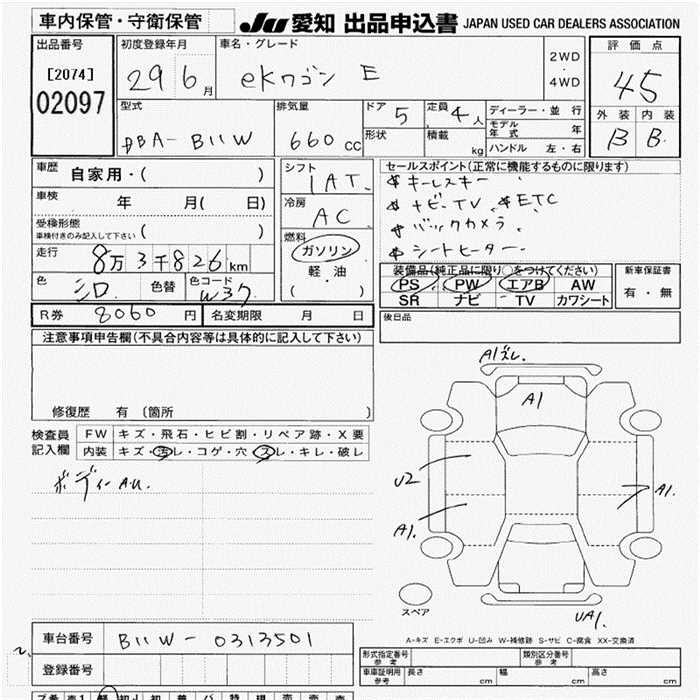 車内保管・守衛保管 JU 愛知 出品申込書 JAPAN USED CAR DEALERS ASSOCIATION
出品番号 初度登録年月 車名・グレード 2WD・4WD 評価点
[2074] 29 6月 eKワゴン E 45
02097
型式 排気量 ドア 5 定員 4人 ディーラー・並行 外装 内装
DBA-B11W 660cc 形状 積載 kg モデル年式 年 B B
ハンドル 左・右
車歴 自家用・( ) シフト 1AT. セールスポイント(正常に機能するものに限ります)
車検 年 月( 日) 冷房 AC キーレスキー
受検形態 ( ) ナビ・TV ETC
車検付きのみ記入して下さい 燃料 バックカメラ
走行 8万3千826km ガソリン シートヒーター
軽・油
・( )
色 シロ. 色替 色コード W37
装備品(純正品に限り○をつけてください) 新車保証書
PS PW エアB AW 有・無
SR ナビ TV カワシート
R券 8060円 名変期限 月 日 後日品
注意事項申告欄(不具合内容等は具体的に記入して下さい)
修復歴 有〔箇所 〕
検査員記入欄 FW キズ・飛石・ヒビ割・リペア跡・X要
内装 キズ・汚レ・コゲ・穴・スレ・キレ・破レ
ボディーA.U.
A1ズレ.
A1
U2
A1.
A1.
UA1.
スペア
A-キズ E-エクボ U-凹み W-補修跡 S-サビ C-腐食 XX-交換済
車台番号 B11W-0313501
登録番号
型式指定番号 参考 類別区分番号 参考
車庫証明用 参考 長さ cm 幅 cm 高さ cm